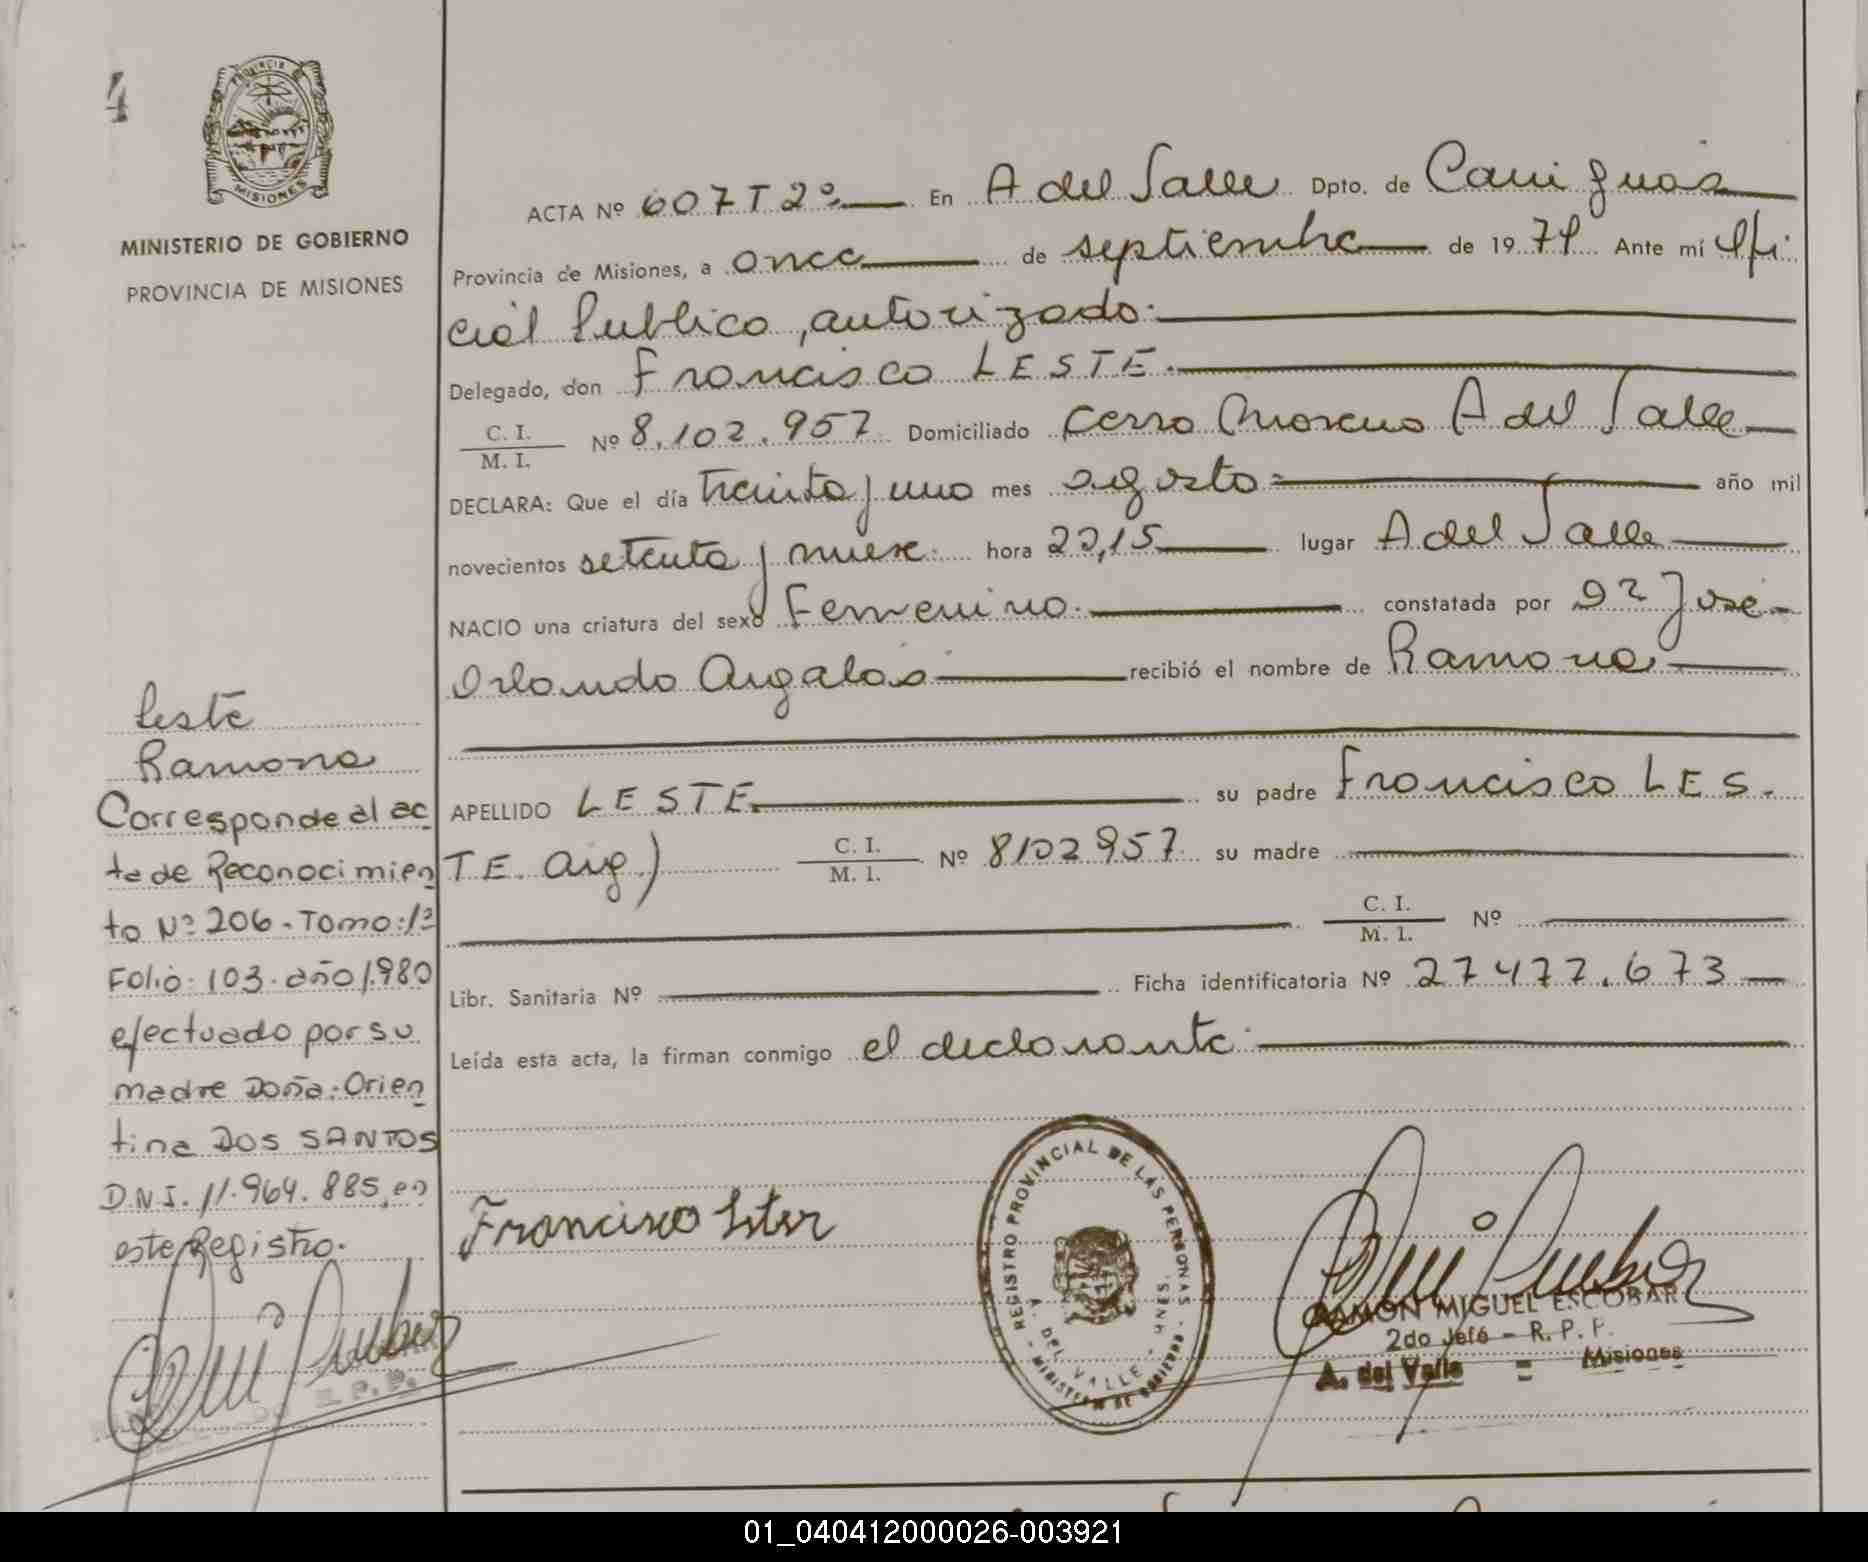 4
PROVINCIA
MISIONES
MINISTERIO DE GOBIERNO
PROVINCIA DE MISIONES
ACTA Nº 607 T 2º En A del Valle Dpto. de Cainguás
Provincia de Misiones, a once de septiembre de 1979 Ante mí Ofi
cial Publico, autorizado.
Delegado, don Francisco LESTE.
C. I.
M. I. Nº 8.102.957 Domiciliado Cerro Moreno A del Valle
DECLARA: Que el día treinta y uno mes agosto año mil
novecientos setenta y nueve hora 22,15 lugar A del Valle
NACIO una criatura del sexo Femenino. constatada por José
Orlando recibió el nombre de Ramona
APELLIDO LESTE su padre Francisco LES-
TE. Arg.) C. I.
M. I. Nº 8102957 su madre
C. I.
M. I. Nº
Libr. Sanitaria Nº Ficha identificatoria Nº 27477.673
Leída esta acta, la firman conmigo el declarante
Leste
Ramona
Corresponde al ac
ta de Reconocimien
to Nº 206. Tomo: 1º
Folio: 103. año 1.980
efectuado por su
madre Doña: Orien
tina DOS SANTOS
D.N.I. 11.964.885, en
este Registro.
Francisco
REGISTRO PROVINCIAL DE LAS PERSONAS
A. DEL VALLE - MNES.
MINISTERIO DE GOBIERNO
RAMON MIGUEL ESCOBAR
2do Jefe - R. P. P.
A. del Valle = Misiones
R. P. P.
01_040412000026-003921